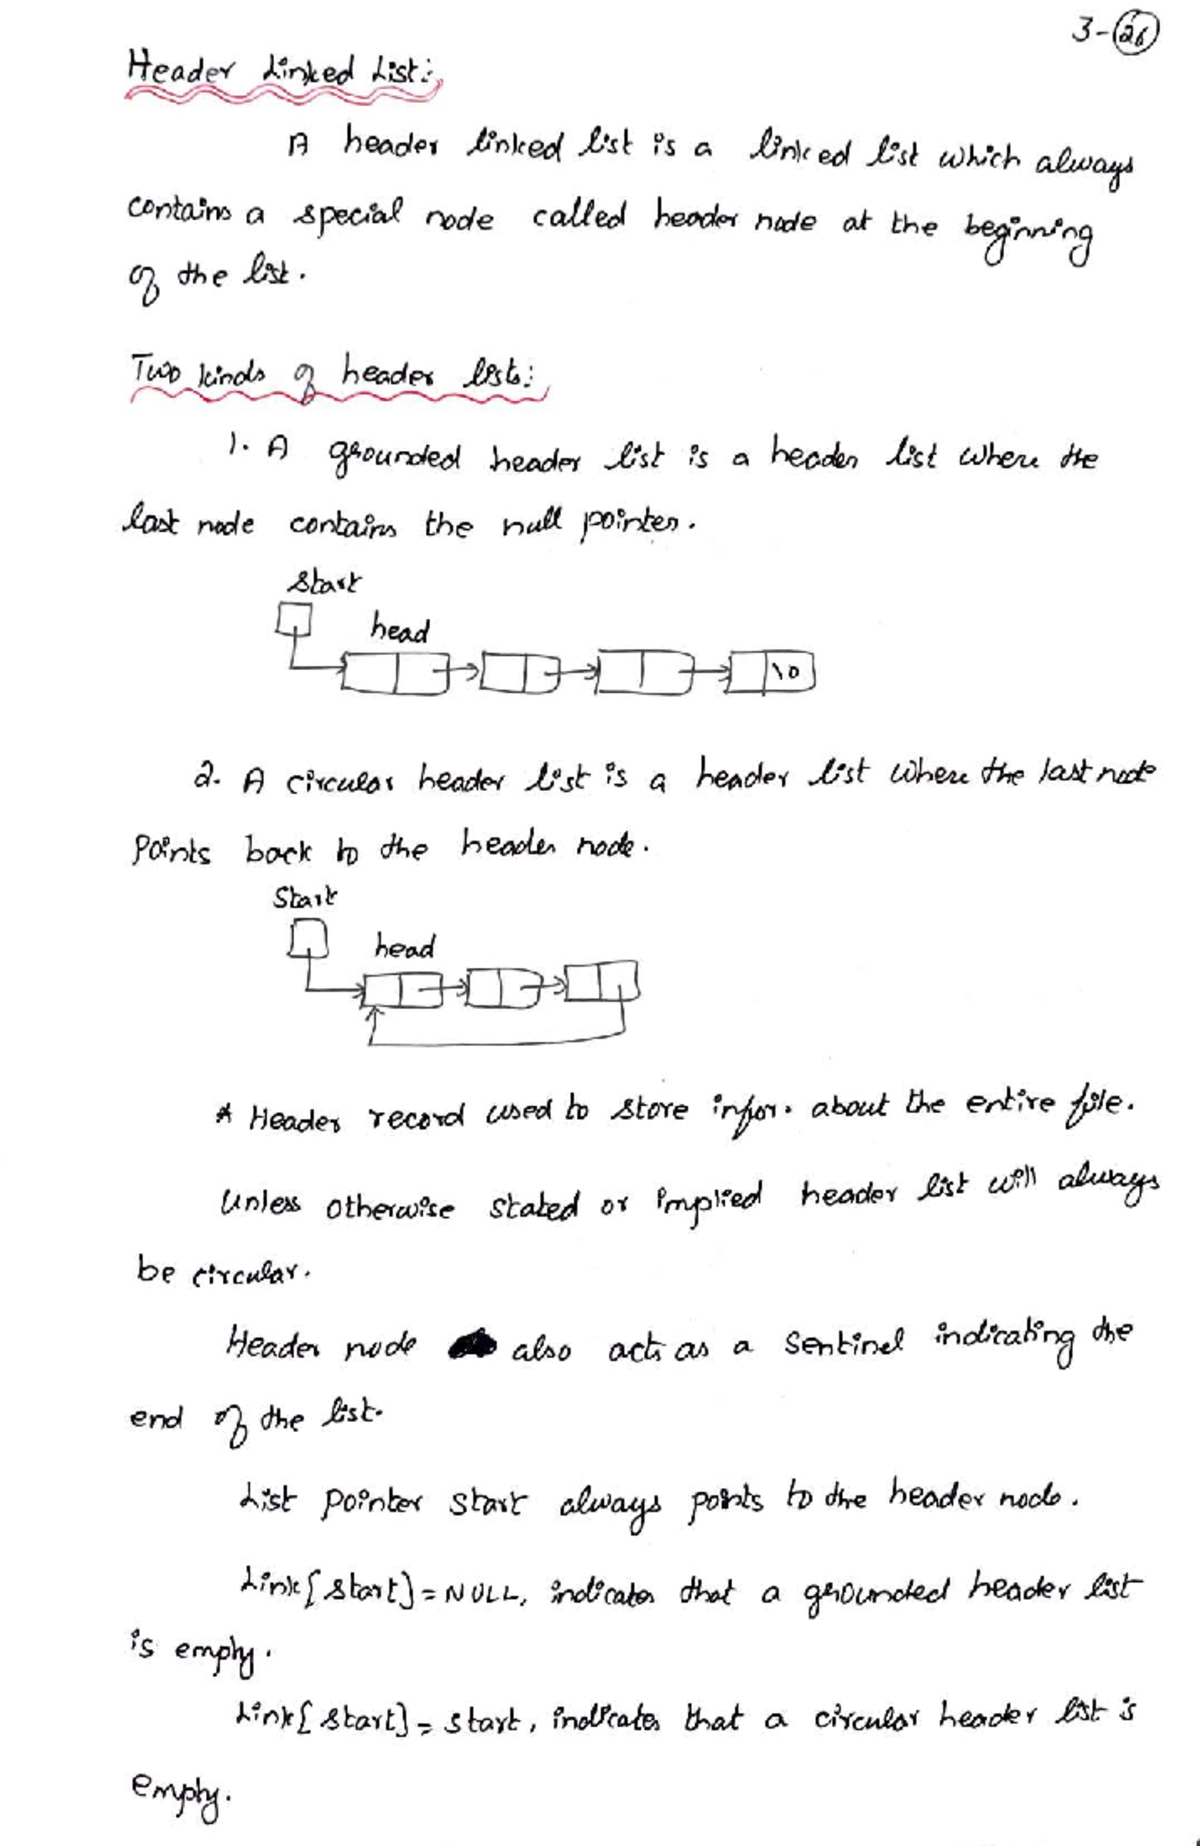 3-26
Header Linked List:
A header linked list is a linked list which always
contains a special node called header node at the beginning
of the list.
Two kinds of header lists:
1. A grounded header list is a header list where the
last node contains the null pointer.
Start
head
\0
2. A circular header list is a header list where the last node
points back to the header node.
Start
head
* Header record used to store infor. about the entire file.
Unless otherwise stated or implied header list will always
be circular.
Header node also acts as a Sentinel indicating the
end of the list.
List pointer start always points to the header node.
Link[start] = NULL, indicates that a grounded header list
is empty.
Link[start] = start, indicates that a circular header list is
empty.